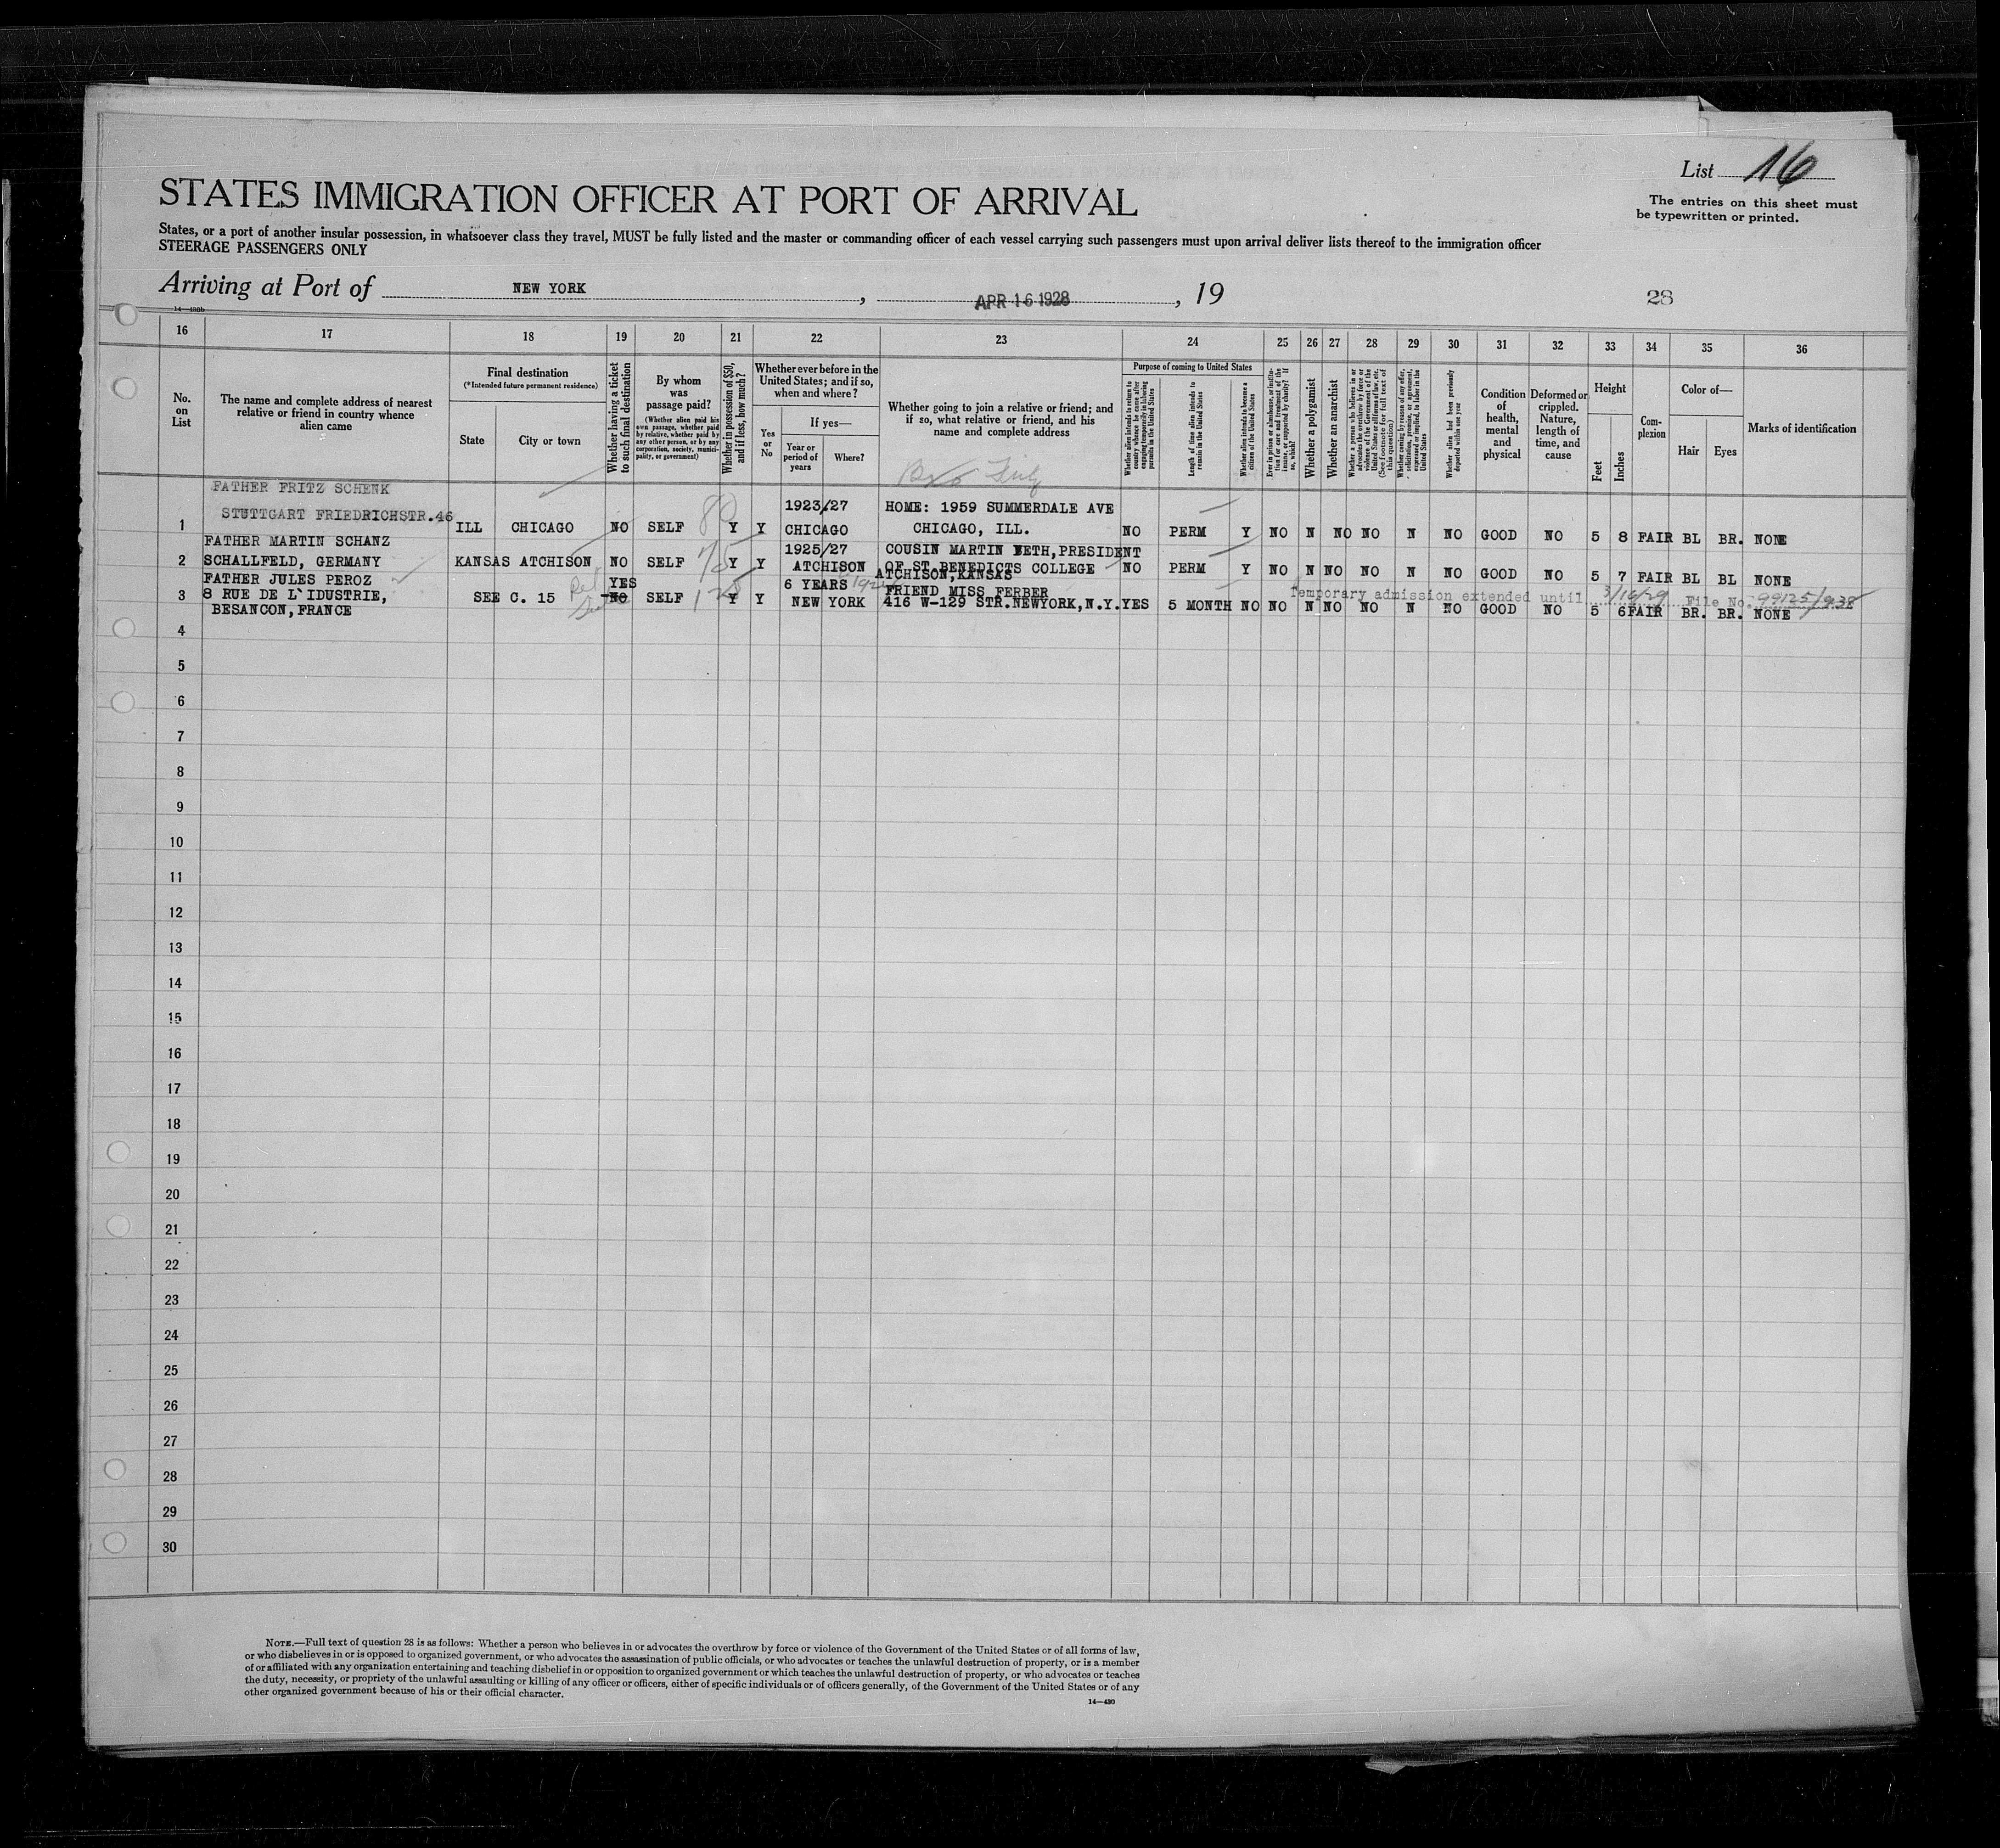 List 16
The entries on this sheet must
be typewritten or printed.
STATES IMMIGRATION OFFICER AT PORT OF ARRIVAL
States, or a port of another insular possession, in whatsoever class they travel, MUST be fully listed and the master or commanding officer of each vessel carrying such passengers must upon arrival deliver lists thereof to the immigration officer
STEERAGE PASSENGERS ONLY
Arriving at Port of NEW YORK , APR 16 1928 , 19 28
14—430b
16 17 18 19 20 21 22 23 24 25 26 27 28 29 30 31 32 33 34 35 36
No.
on
List
The name and complete address of nearest
relative or friend in country whence
alien came
Final destination
(*Intended future permanent residence)
State
City or town
Whether having a ticket
to such final destination
By whom
was
passage paid?
(Whether alien paid his
own passage, whether paid
by relative, whether paid by
any other person, or by any
corporation, society, munici-
pality, or government)
Whether in possession of $50,
and if less, how much?
Whether ever before in the
United States; and if so,
when and where?
Yes
or
No
If yes—
Year or
period of
years
Where?
Whether going to join a relative or friend; and
if so, what relative or friend, and his
name and complete address
Purpose of coming to United States
Whether alien intends to return to
country whence he came after
engaging temporarily in laboring
pursuits in the United States
Length of time alien intends to
remain in the United States
Whether alien intends to become a
citizen of the United States
Ever in prison or almshouse, or institu-
tion for care and treatment of the
insane, or supported by charity? If
so, which?
Whether a polygamist
Whether an anarchist
Whether a person who believes in or
advocates the overthrow by force or
violence of the Government of the
United States or all forms of law, etc.
(See footnote for full text of
this question)
Whether coming by reason of any offer,
solicitation, promise, or agreement,
expressed or implied, to labor in the
United States
Whether alien had been previously
deported within one year
Condition
of
health,
mental
and
physical
Deformed or
crippled.
Nature,
length of
time, and
cause
Height
Feet
Inches
Com-
plexion
Color of—
Hair
Eyes
Marks of identification
FATHER FRITZ SCHENK
STUTTGART FRIEDRICHSTR.46
1 ILL CHICAGO NO SELF 80 Y Y 1923/27 CHICAGO HOME: 1959 SUMMERDALE AVE CHICAGO, ILL. NO PERM Y NO N NO NO N NO GOOD NO 5 8 FAIR BL BR. NONE
FATHER MARTIN SCHANZ
2 SCHALLFELD, GERMANY KANSAS ATCHISON NO SELF 75 Y Y 1925/27 ATCHISON COUSIN MARTIN VETH,PRESIDENT OF ST.BENEDICTS COLLEGE ATCHISON,KANSAS NO PERM Y NO N NO NO N NO GOOD NO 5 7 FAIR BL BL NONE
FATHER JULES PEROZ
3 8 RUE DE L`IDUSTRIE,
BESANCON,FRANCE
SEE C. 15 YES NO SELF 125 Y Y 6 YEARS NEW YORK FRIEND MISS FERBER
416 W-129 STR.NEWYORK,N.Y. YES 5 MONTH NO NO N NO NO N NO GOOD NO 5 6 FAIR BR. BR. NONE
Temporary admission extended until 3/16/29 File No. 99125/938
4
5
6
7
8
9
10
11
12
13
14
15
16
17
18
19
20
21
22
23
24
25
26
27
28
29
30
NOTE.—Full text of question 28 is as follows: Whether a person who believes in or advocates the overthrow by force or violence of the Government of the United States or of all forms of law,
or who disbelieves in or is opposed to organized government, or who advocates the assassination of public officials, or who advocates or teaches the unlawful destruction of property, or is a member
of or affiliated with any organization entertaining and teaching disbelief in or opposition to organized government or which teaches the unlawful destruction of property, or who advocates or teaches
the duty, necessity, or propriety of the unlawful assaulting or killing of any officer or officers, either of specific individuals or of officers generally, of the Government of the United States or of any
other organized government because of his or their official character.
14—430